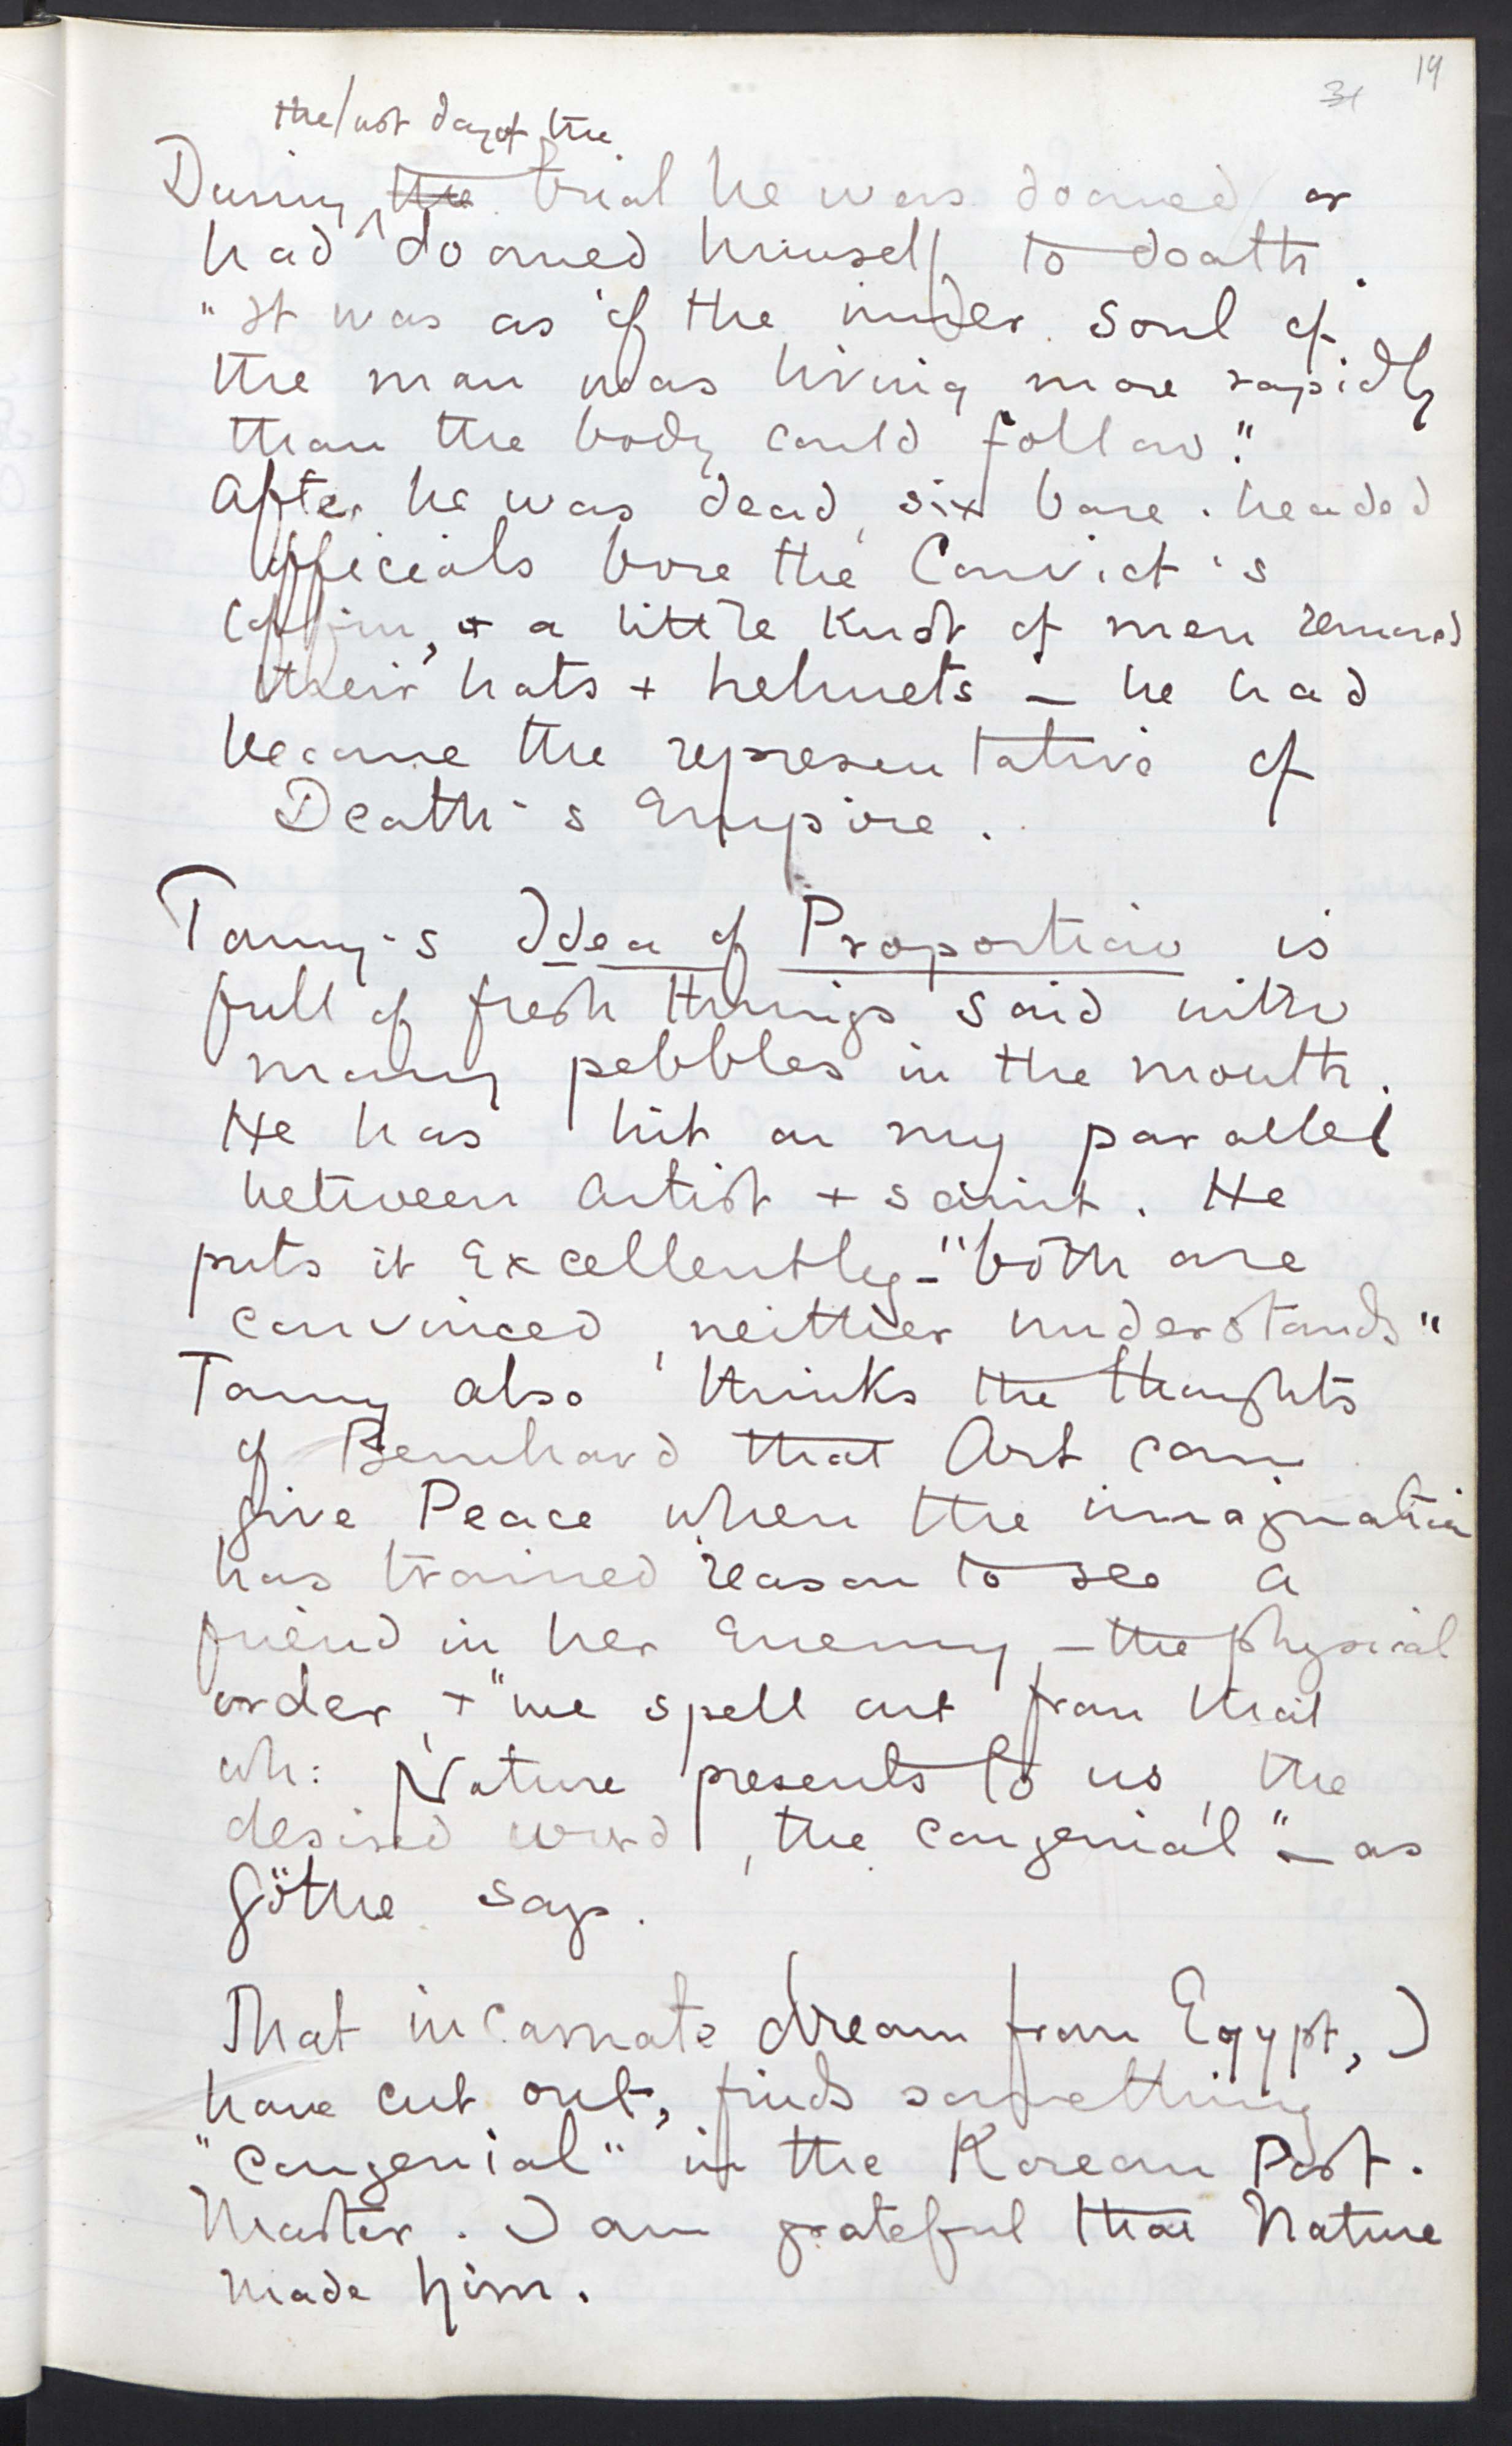 19
31
the last day of the
During the trial he was doomed or
had doomed himself to death.
"It was as if the inner soul of
the man was living more rapidly
than the body could follow."
After he was dead, six bare-headed
officials bore the Convict's
coffin, + a little knot of men removed
their hats + helmets – he had
become the representative of
Death's Empire.
Tommy's Idea of Proportion is
full of fresh things said with
many pebbles in the mouth.
He has hit on my parallel
between artist + saint. He
puts it excellently – "both are
convinced, neither understands"
Tommy also thinks the thoughts
of Bernhard that Art can
give Peace when the imagination
has trained reason to see a
friend in her Enemy – the physical
order, + "we spell out from that
wh: Nature presents to us, the
desired word, the congenial" – as
Göthe says.
That incarnate dream from Egypt, I
have cut out, finds something
"congenial" in the Korean Post-
Master. I am grateful that Nature
made him.